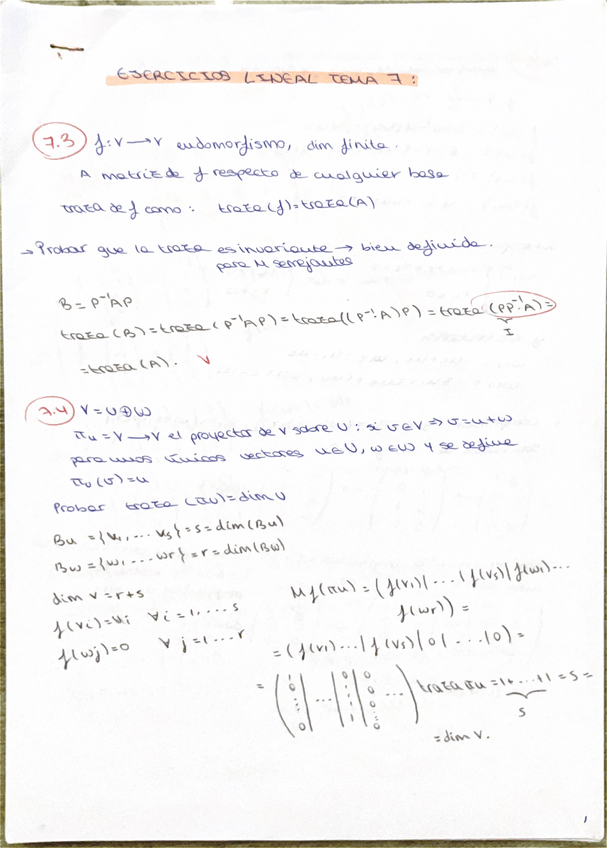 EJERCICIOS LINEAL TEMA 7:
7.3 f: V → V endomorfismo, dim finita.
A matriz de f respecto de cualquier base
traza de f como: traza(f)=traza(A)
→ Probar que la traza es invariante → bien definida.
para M semejantes
B = P⁻¹AP
traza(B)=traza(P⁻¹AP)=traza((P⁻¹A)P)=traza(PP⁻¹A)=
I
=traza(A). V
7.4 V=U⊕W
πu = V → V el proyector de V sobre U: si v∈V ⇒ v=u+w
para unos únicos vectores u∈U, w∈W y se define
πu(v)=u
Probar traza(πu)=dim U
Bu = {v1,... vs} = s = dim(Bu)
Bw = {w1 ... wr} = r = dim(Bw)
dim V = r+s
f(vi)=vi ∀i=1,...s
f(wj)=0 ∀j=1...r
Mf(πu) = (f(v1)|...|f(vs)|f(w1)...
f(wr)) =
= (f(v1)...|f(vs)|0|...|0) =
= (1 0 ⋮ 0 | ... | 0 0 ⋮ 1 | 0 0 0 ⋮ 0 ...) traza πu = 1+...+1 = s =
s
= dim V.
1